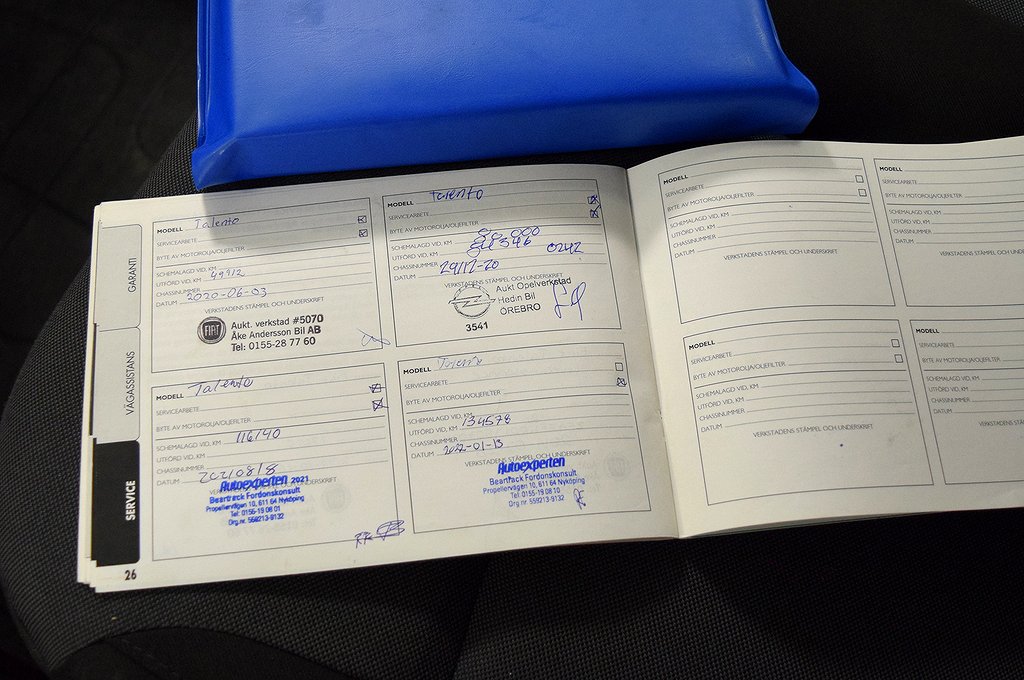 GARANTI
VÄGASSISTANS
SERVICE
26
MODELL Talento
SERVICEARBETE
BYTE AV MOTOROLJA/OLJEFILTER
SCHEMALAGD VID, KM
UTFÖRD VID, KM 49912
CHASSINUMMER
DATUM 2020-06-03
VERKSTADENS STÄMPEL OCH UNDERSKRIFT
FIAT
Aukt. verkstad #5070
Åke Andersson Bil AB
Tel: 0155-28 77 60
MODELL Talento
SERVICEARBETE
BYTE AV MOTOROLJA/OLJEFILTER
SCHEMALAGD VID, KM
UTFÖRD VID, KM
CHASSINUMMER 0242
DATUM 29/12-20
VERKSTADENS STÄMPEL OCH UNDERSKRIFT
Aukt Opelverkstad
Hedin Bil
ÖREBRO
3541
MODELL Talento
SERVICEARBETE
BYTE AV MOTOROLJA/OLJEFILTER
SCHEMALAGD VID, KM 116140
UTFÖRD VID, KM
CHASSINUMMER
DATUM 20210818
VERKSTADENS STÄMPEL OCH UNDERSKRIFT
Autoexperten 2021
Beartrack Fordonskonsult
Propellervägen 10, 611 64 Nyköping
Tel: 0155-19 08 01
Org.nr. 559213-9132
MODELL Talento
SERVICEARBETE
BYTE AV MOTOROLJA/OLJEFILTER
SCHEMALAGD VID, KM
UTFÖRD VID, KM 134578
CHASSINUMMER
DATUM 2022-01-13
VERKSTADENS STÄMPEL OCH UNDERSKRIFT
Autoexperten
Beartrack Fordonskonsult
Propellervägen 10, 611 64 Nyköping
Tel: 0155-19 08 10
Org.nr. 559213-9132
MODELL
SERVICEARBETE
BYTE AV MOTOROLJA/OLJEFILTER
SCHEMALAGD VID, KM
UTFÖRD VID, KM
CHASSINUMMER
DATUM
VERKSTADENS STÄMPEL OCH UNDERSKRIFT
MODELL
SERVICEARBETE
BYTE AV MOTOROLJA/OLJEFILTER
SCHEMALAGD VID, KM
UTFÖRD VID, KM
CHASSINUMMER
DATUM
VERKSTADENS STÄMPEL OCH UND
MODELL
SERVICEARBETE
BYTE AV MOTOROLJA/OLJEFILTER
SCHEMALAGD VID, KM
UTFÖRD VID, KM
CHASSINUMMER
DATUM
VERKSTADENS STÄMPEL OCH UNDERSKRIFT
MODELL
SERVICEARBETE
BYTE AV MOTOROLJA/OLJEFILTER
SCHEMALAGD VID, KM
UTFÖRD VID, KM
CHASSINUMMER
DATUM
VERKSTADENS STÄ